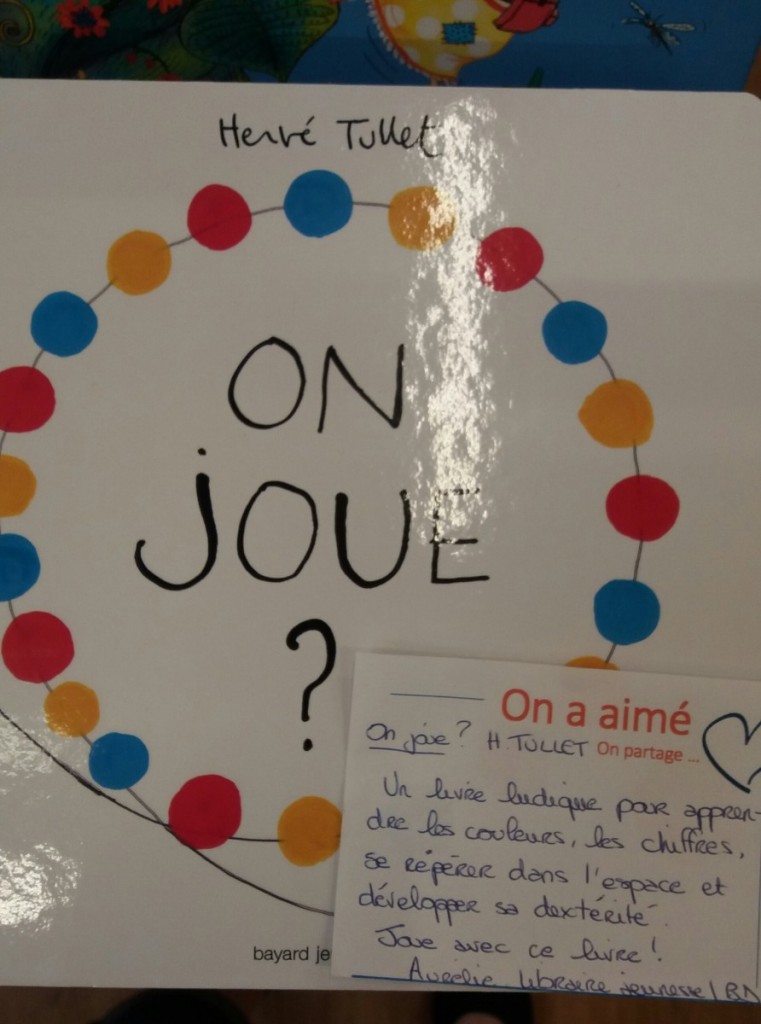 Hervé Tullet
ON
JOUE
?
On a aimé
On joue? H. TULLET On partage ...
Un livre ludique pour appren-
dre les couleurs, les chiffres,
se répérer dans l'espace et
développer sa dextérité.
Joue avec ce livre!
Aurélie libraire jeunesse
bayard je